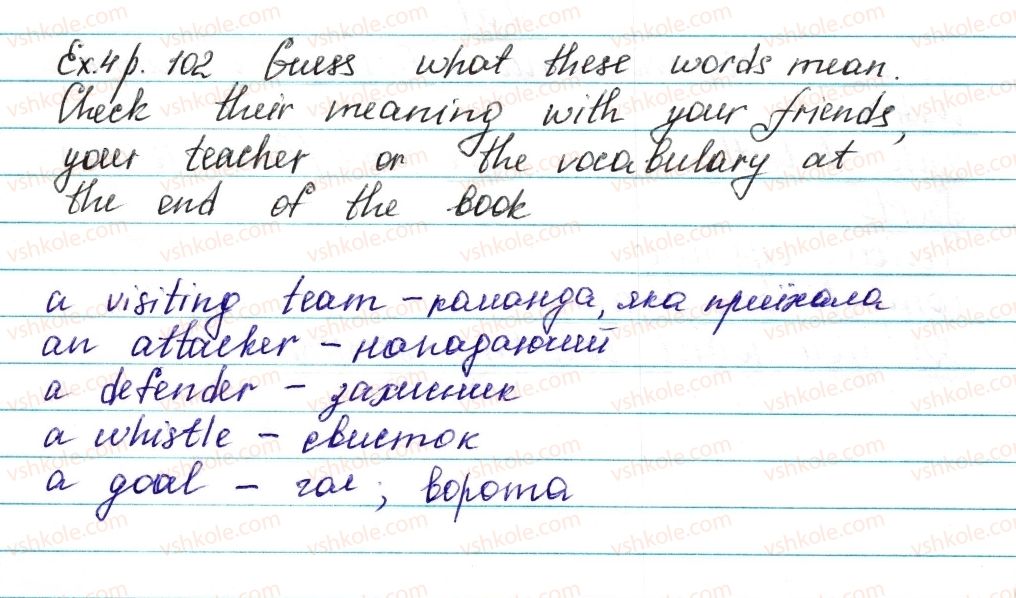 Ex.4 p. 102 Guess what these words mean.
Check their meaning with your friends,
your teacher or the vocabulary at
the end of the book
a visiting team – команда, яка приїхала
an attacker – нападаючий
a defender – захисник
a whistle – свисток
a goal – гол; ворота